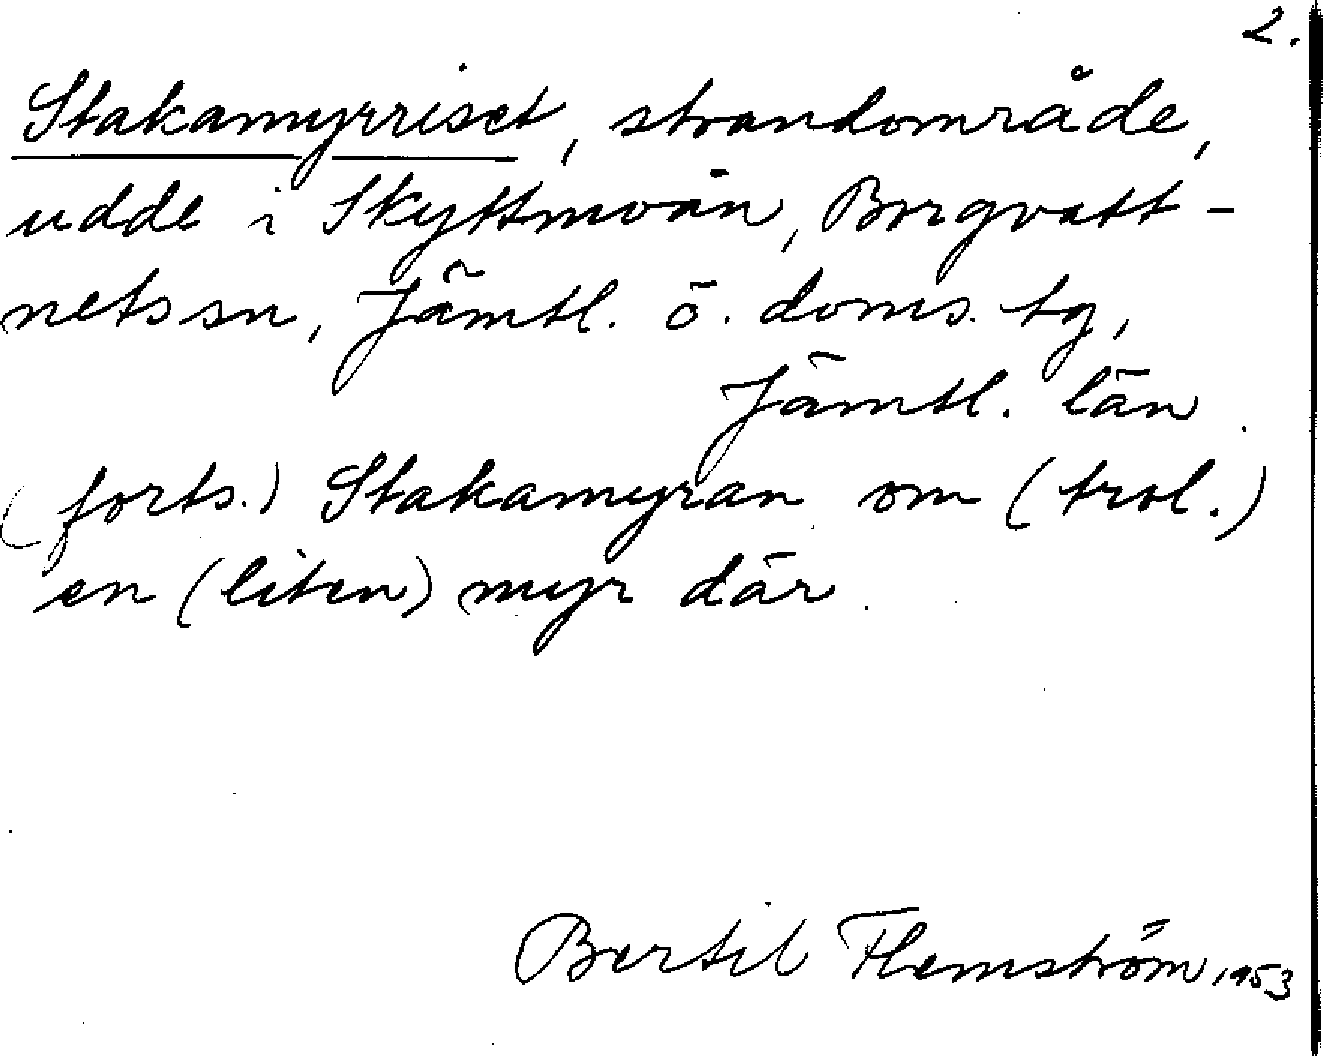 2.
Stakamyrriset, strandområde,
udde i Skyttmoån, Borgvatt-
nets sn, Jämtl. ö. doms. tg,
Jämtl. län.
(forts.) Stakamyran om (trol.)
en (liten) myr där.
Bertil Flemström 1953